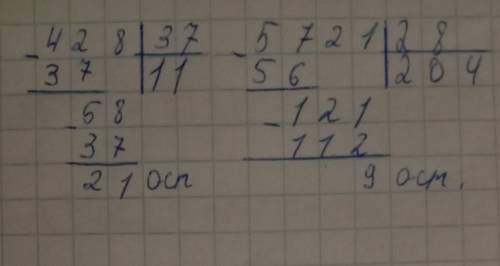 -428|37 -5721|28
37 |11 56 |204
-58 -121
37 112
21 ост 9 ост.